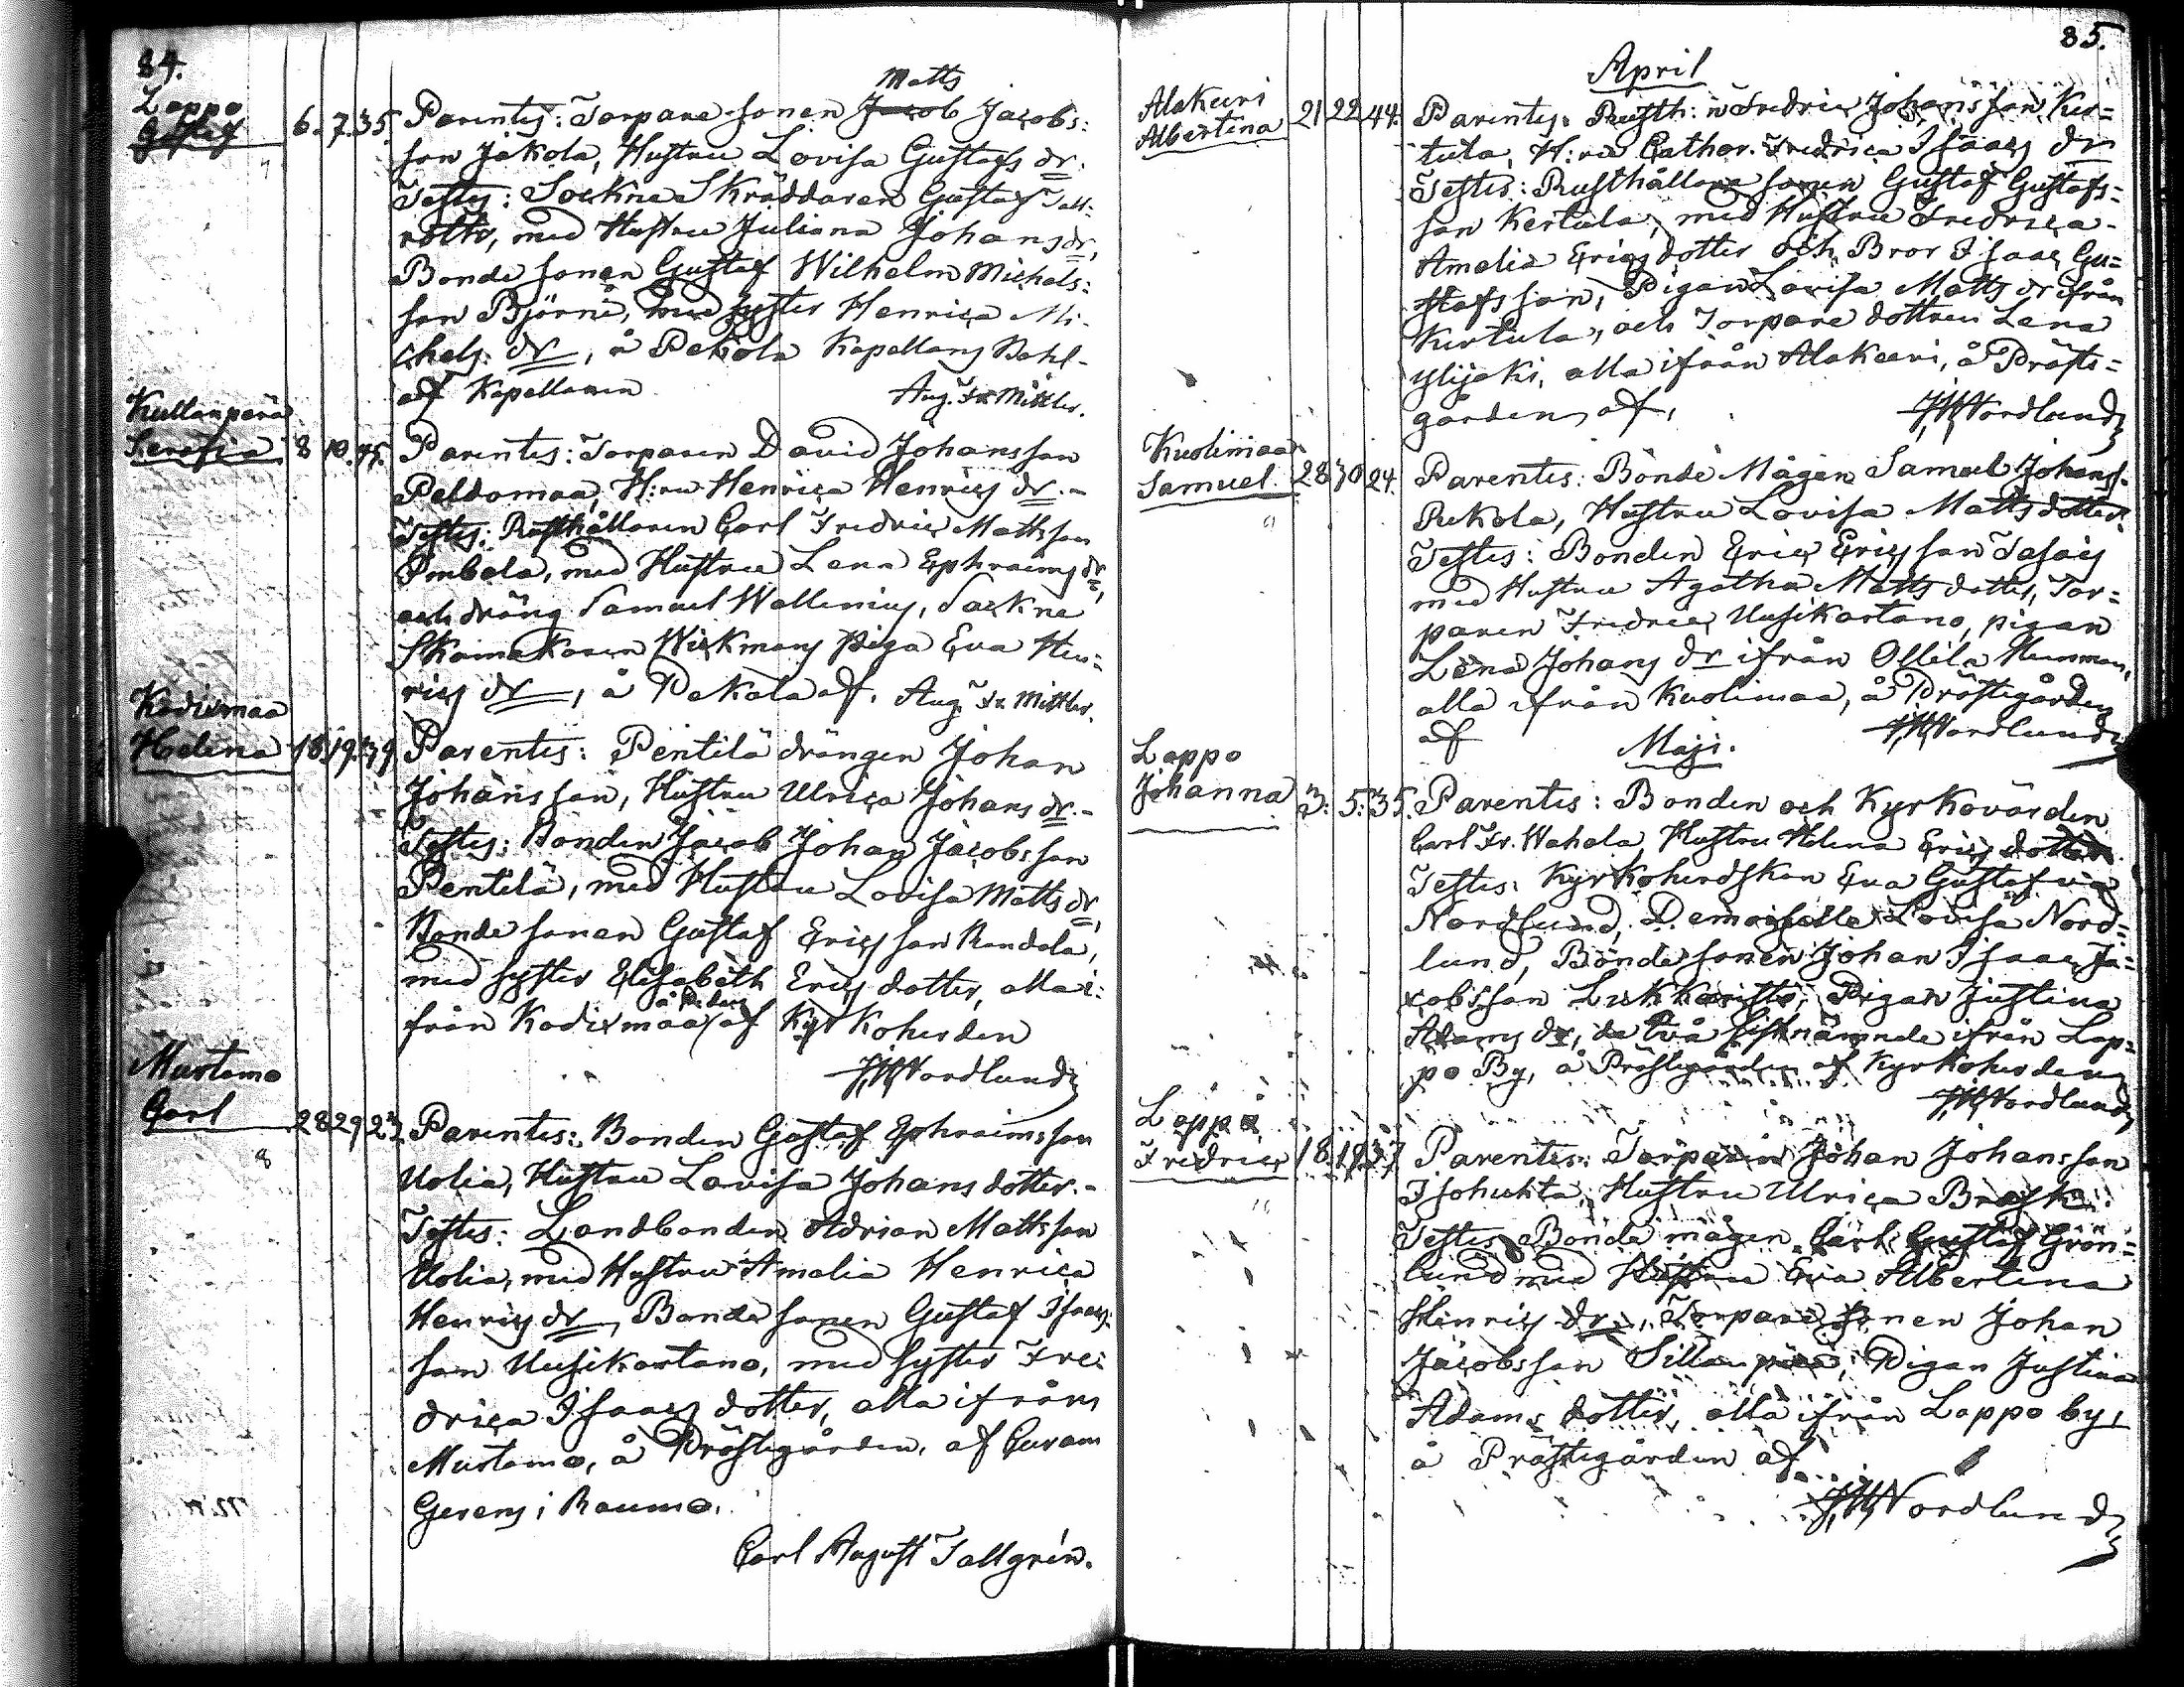 84.
Lappo
Gustaf 6. 7. 35.
Matts
Parentes: Torpare sonen Jacob Jacobs:
son Jakola, Hustru Lovisa Gustafs dr.
Testes: Sockne Skräddaren Gustaf Tall:
roth, med Hustru Juliana Johans dr,
Bonde sonen Gustaf Wilhelm Michels:
son Björni, med syster Henrica Mi-
chels. dr, å Pekola Kapellans Bohl-
af Kapellanen Aug. Fr. Mittler.
Kullanperä
Serafia 8 10. 45.
Parentes: Torparen David Johansson
Peldomaa, H:ru Henrica Henrics dr.-
Testes: Rusthållaren Carl Fredric Mattsson
Imbola, med Hustru Lena Ephraims dr,
och dräng Samuel Wallenius, Sockne
Skomakaren Wickmans Piga Eva Hen:
rics dr, å Pekola af. Aug. Fr. Mittler.
Kodixmaa
Helena 18. 19. 39
Parentes: Pentilä drängen Johan
Johansson, Hustru Ulrica Johans dr.-
Testes: Bonden Jacob Johan Jacobsson
Pentilä, med Hustru Lovisa Matts dr,
Bonde sonen Gustaf Ericsson Randala,
med syster Elisabeth Erics dotter, alla i:
från Kodixmaa, af Kyrkoherden
Nordlund
Murtamo
Carl 28 29 23
Parentes: Bonden Gustaf Ephraimsson
Uolia, Hustru Lovisa Johans dotter.-
Testes: Landbonden Adrian Mattsson
Uolia, med Hustru Amalia Henrica
Henrics dr, Bonde sonen Gustaf Isaacs:
son Uusikartano, med syster Fre:
drica Isaacs dotter, alla ifrån
Murtamo, å Prästegården, af Curam
Gerens i Raumo.
Carl August Tallgrén.
85.
April
Alakuri
Albertina 21 22 44.
Parentes: Rusth:n Fredric Johansson Ker=
tula, H:ru Cathar. Fredrica Isaacs dr
Testes: Rusthållare sonen Gustaf Gustafs:
son Kertula, med Hustru Fredrica-
Amalia Ericsdotter och Bror Isaac Gu=
stafsson, Pigan Lovisa Matts dr ifrån
Kertula, och Torpare dottren Lena
Ylijoki, alla ifrån Alakuri, å Präste=
gården, af, Nordlund
Kuolimaa
Samuel. 28 30 24.
Parentes: Bonde Mågen Samuel Johanss.
Pukola, Hustru Lovisa Matts dotter.
Testes: Bonden Eric Ericsson
med Hustru Agatha Matts dotter, Tor=
paren Fredric Uusikartano, pigan
Lena Johans dr ifrån Ollila
alla ifrån Kuolimaa, å Prästegården
af Nordlund
Maji.
Lappo
Johanna 3. 5. 35.
Parentes: Bonden och Kyrkovärden
Carl Fr. Wahala, Hustru Helena Erics dotter.
Testes: Kyrkoherdskan Eva Gustafva
Nordlund, Demoiselle Lovisa Nord=
lund, Bonde sonen Johan Isaac Ja=
cobsson Pigan Justina
Adams dr, de två sistnämnde ifrån Lap=
po By, å Prästegården af Kyrkoherden
Nordlund
Lappo
Fredric 18. 19. 37
Parentes: Torparen Johan Johansson
Isohuhta, Hustru Ulrica Brask.
Testes: Bonde mågen Carl Gustaf Grön=
lund med Hustru Eva Albertina
Hinrics dr, Torpare sonen Johan
Jacobsson Sillanpää, Pigan Justina
Adams dotter, alla ifrån Lappo by,
å Prästegården af
Nordlund